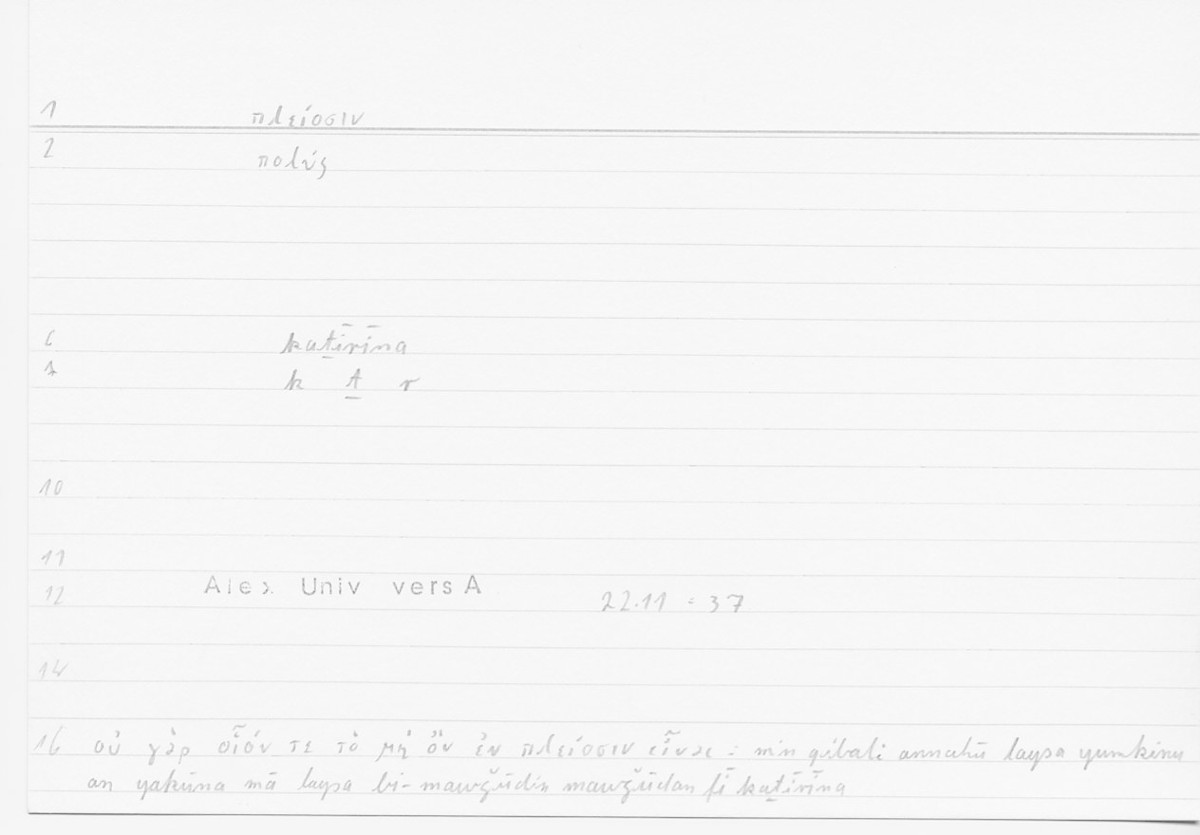 1 πλείοσιν
2 πολύς
6 kaṯīrīna
7 k A̲ r
10
11
12 Alex Univ vers A 22.11 = 37
14
16 οὐ γὰρ οἷόν τε τὸ μὴ ὂν ἐν πλείοσιν εἶναι : min qibali annahū laysa yumkinu
an yakūna mā laysa bi-mawǧūdin mawǧūdan fī kaṯīrīna